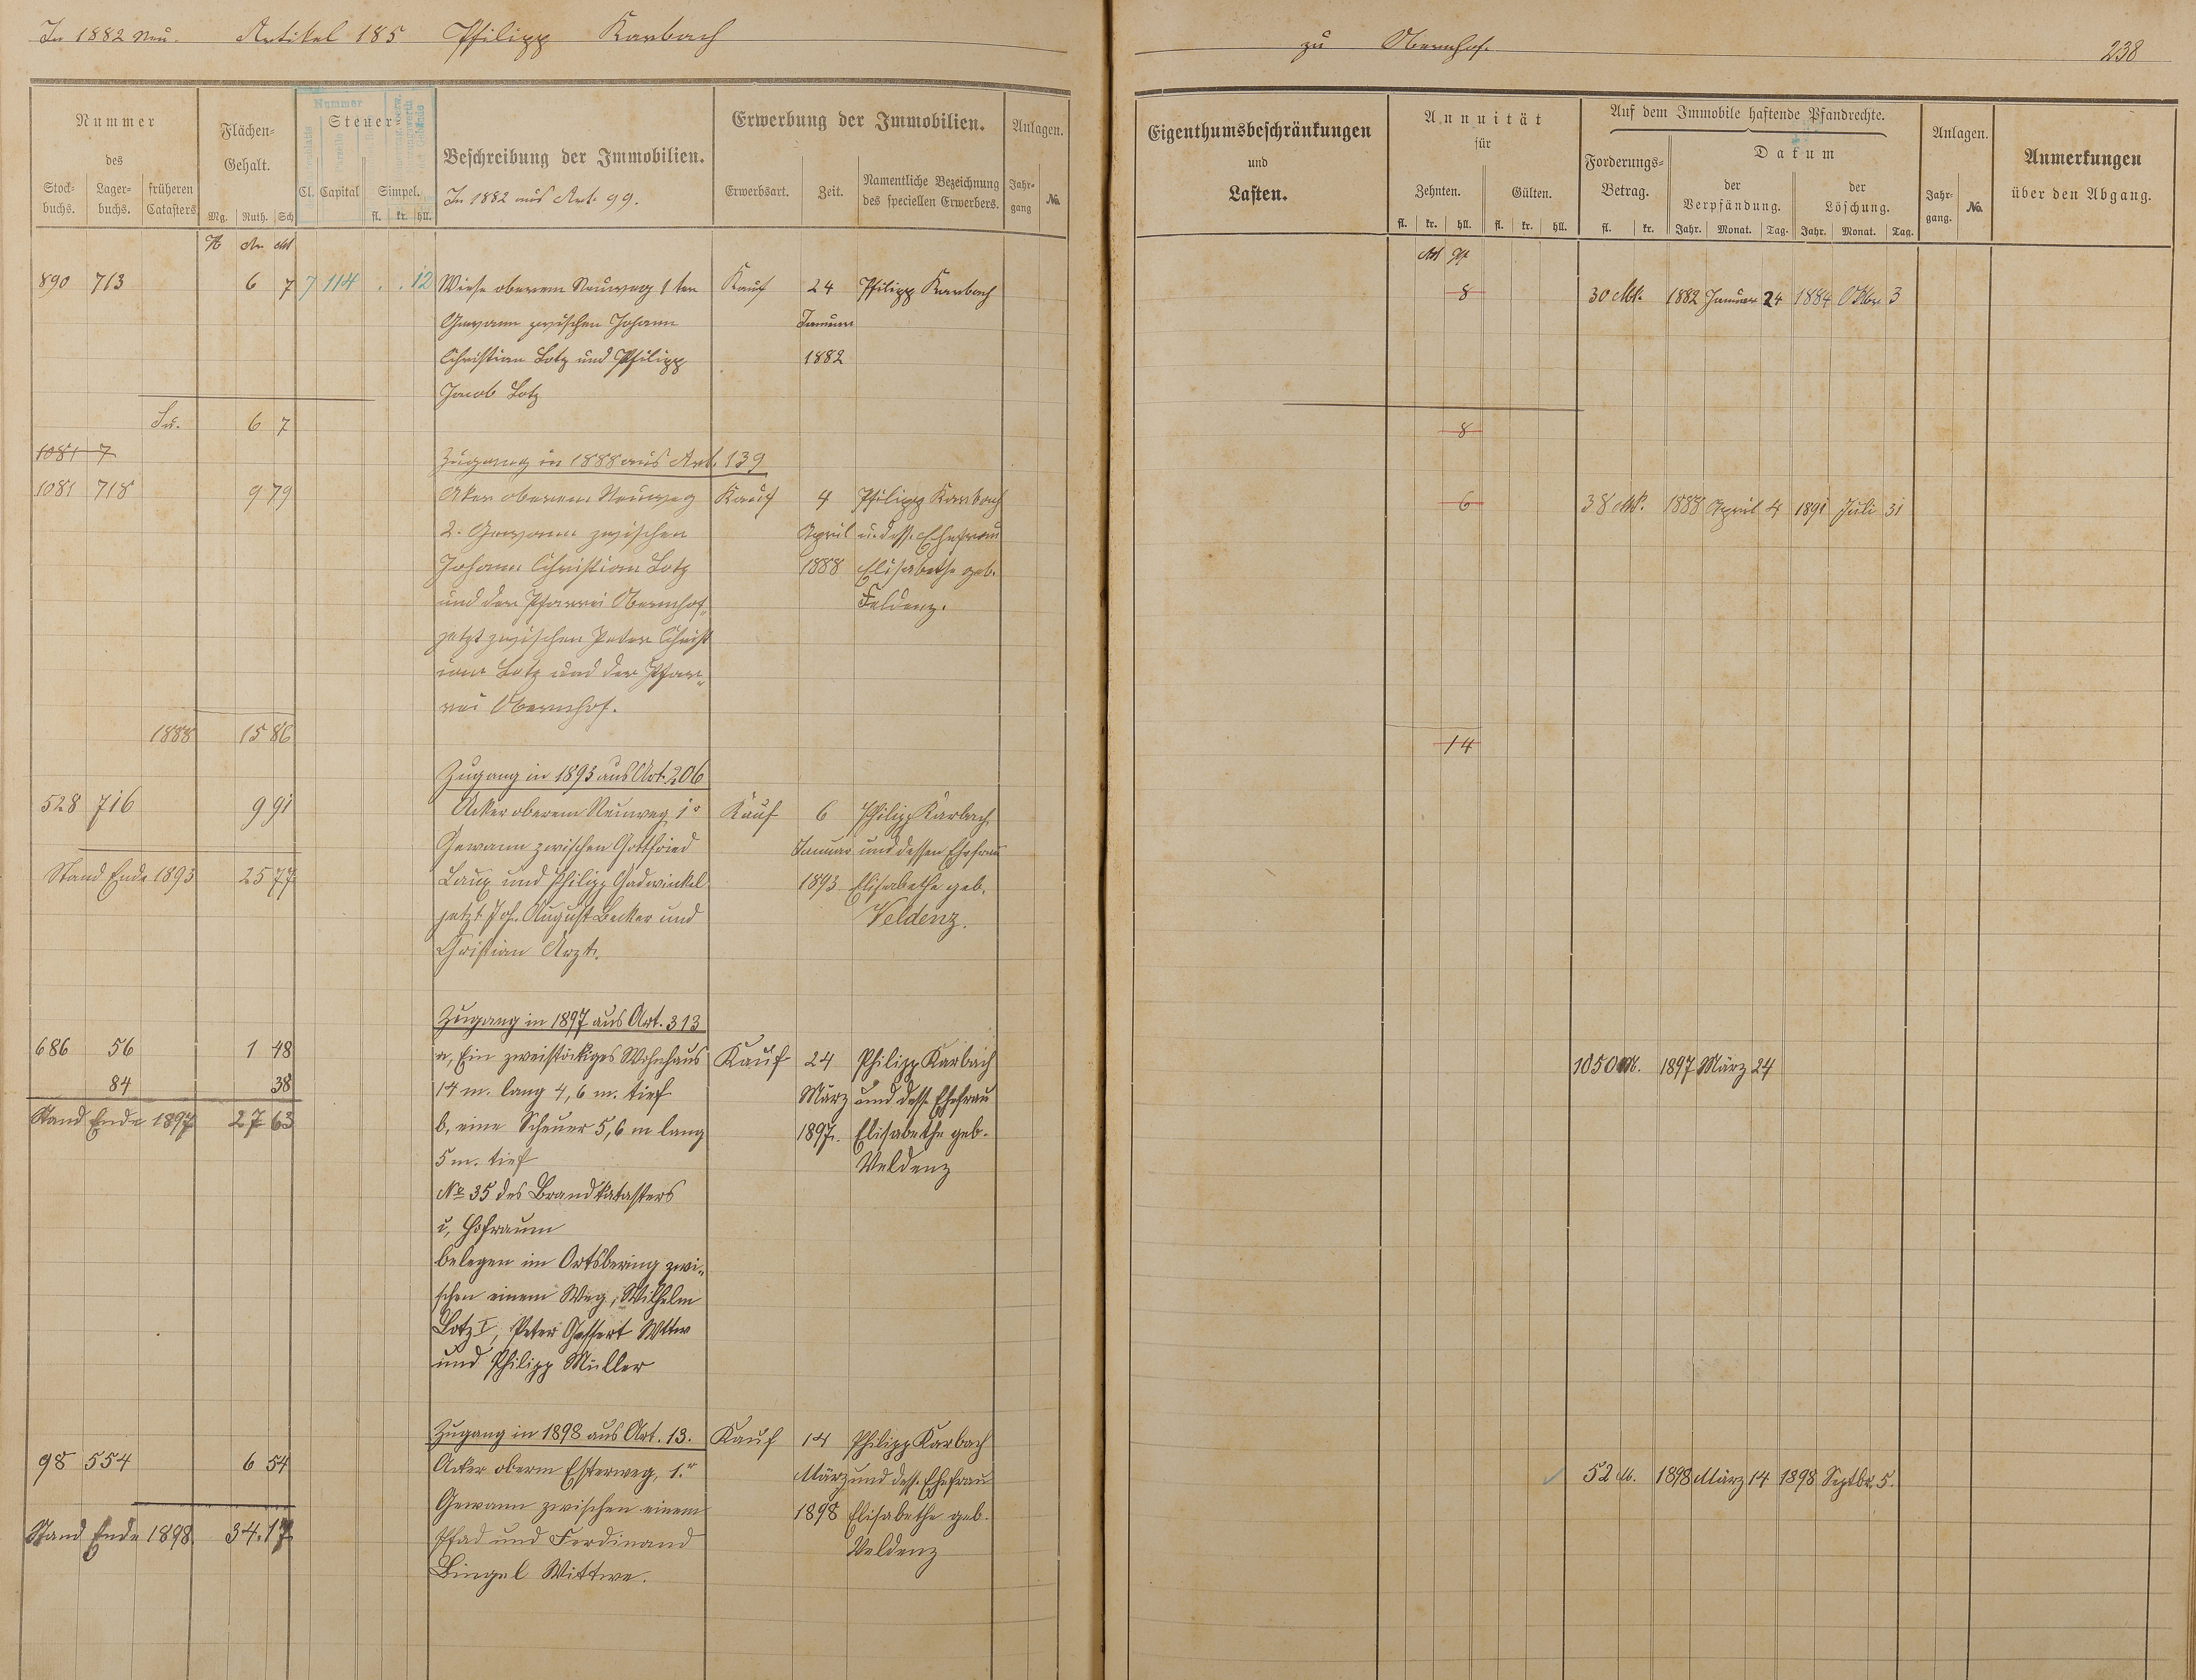 In 1882 Neu. Artikel 185 Philipp Karbach
zu Obernhof. 238
Nummer des
Stockbuchs. Lagerbuchs. früheren Catasters
Flächen-Gehalt.
Mg. Ruth. Sch
Nummer
Steuer-
Cl. Capital Simpel.
fl. kr. hll.
Beschreibung der Immobilien.
In 1882 aus Art. 99.
Erwerbung der Immobilien.
Erwerbsart. Zeit. Namentliche Bezeichnung des speciellen Erwerbers.
Anlagen.
Jahrgang No.
Eigenthumsbeschränkungen
und
Lasten.
Annuität
für
Zehnten. Gülten.
fl. kr. hll. fl. kr. hll.
Auf dem Immobile haftende Pfandrechte.
Forderungs-Betrag.
fl. kr.
Datum
der Verpfändung. der Löschung.
Jahr. Monat. Tag. Jahr. Monat. Tag.
Anlagen.
Jahrgang. No.
Anmerkungen
über den Abgang.
890 713 6 7 7 114 . . 12 Wiese oberem Neuweg 1ter Kauf 24 Philipp Karbach 8 30 Mk. 1882 Januar 24 1884 Oktbr 3
Gewann zwischen Johann Januar
Christian Lotz und Philipp 1882
Jacob Lotz
Su. 6 7 8
1081 7
Zugang in 1888 aus Art. 139
1081 718 9 79 Aker oberem Neuweg Kauf 4 Philipp Karbach 6 38 Mk. 1888 April 4 1891 Juli 31
2. Gewann zwischen April u. dess. Ehefrau
Johann Christian Lotz 1888 Elisabethe geb.
und der Pfarrei Obernhof, Feldenz.
jetzt zwischen Peter Christ
ian Lotz und der Pfar-
rei Obernhof.
1888 15 86 14
Zugang in 1893 aus Art. 206
528 716 9 91 Acker oberem Neuweg 1r Kauf 6 Philipp Karbach
Gewann zwischen Gottfried Januar und dessen Ehefrau
Stand Ende 1893 25 77 Laux und Philipp Hadwinkel 1893 Elisabethe geb.
jetzt Joh. August Becker und Veldenz.
Christian Arzt.
Zugang in 1897 aus Art. 313
686 56 1 48 a, Ein zweistöckiges Wohnhaus Kauf 24 Philipp Karbach 1050 M. 1897 März 24
84 38 14 m. lang 4,6 m. tief März und dess. Ehefrau
Stand Ende 1897 27 63 b, eine Scheuer 5,6 m lang 1897. Elisabethe geb.
5 m. tief Veldenz
No 35 des Brandkatasters
u, Hofraum
belegen im Ortsbering zwi-
schen einem Weg, Wilhelm
Lotz I, Peter Wttw
und Philipp Müller
Zugang in 1898 aus Art. 13. Kauf 14 Philipp Karbach
98 554 6 54 Acker oberm Esterweg, 1.r März und dess. Ehefrau 52 M. 1898 März 14 1898 Septbr. 5.
Gewann zwischen einem 1898 Elisabethe geb.
Stand Ende 1898 34.17 Pfad und Ferdinand Veldenz
Bingel Wittwe.